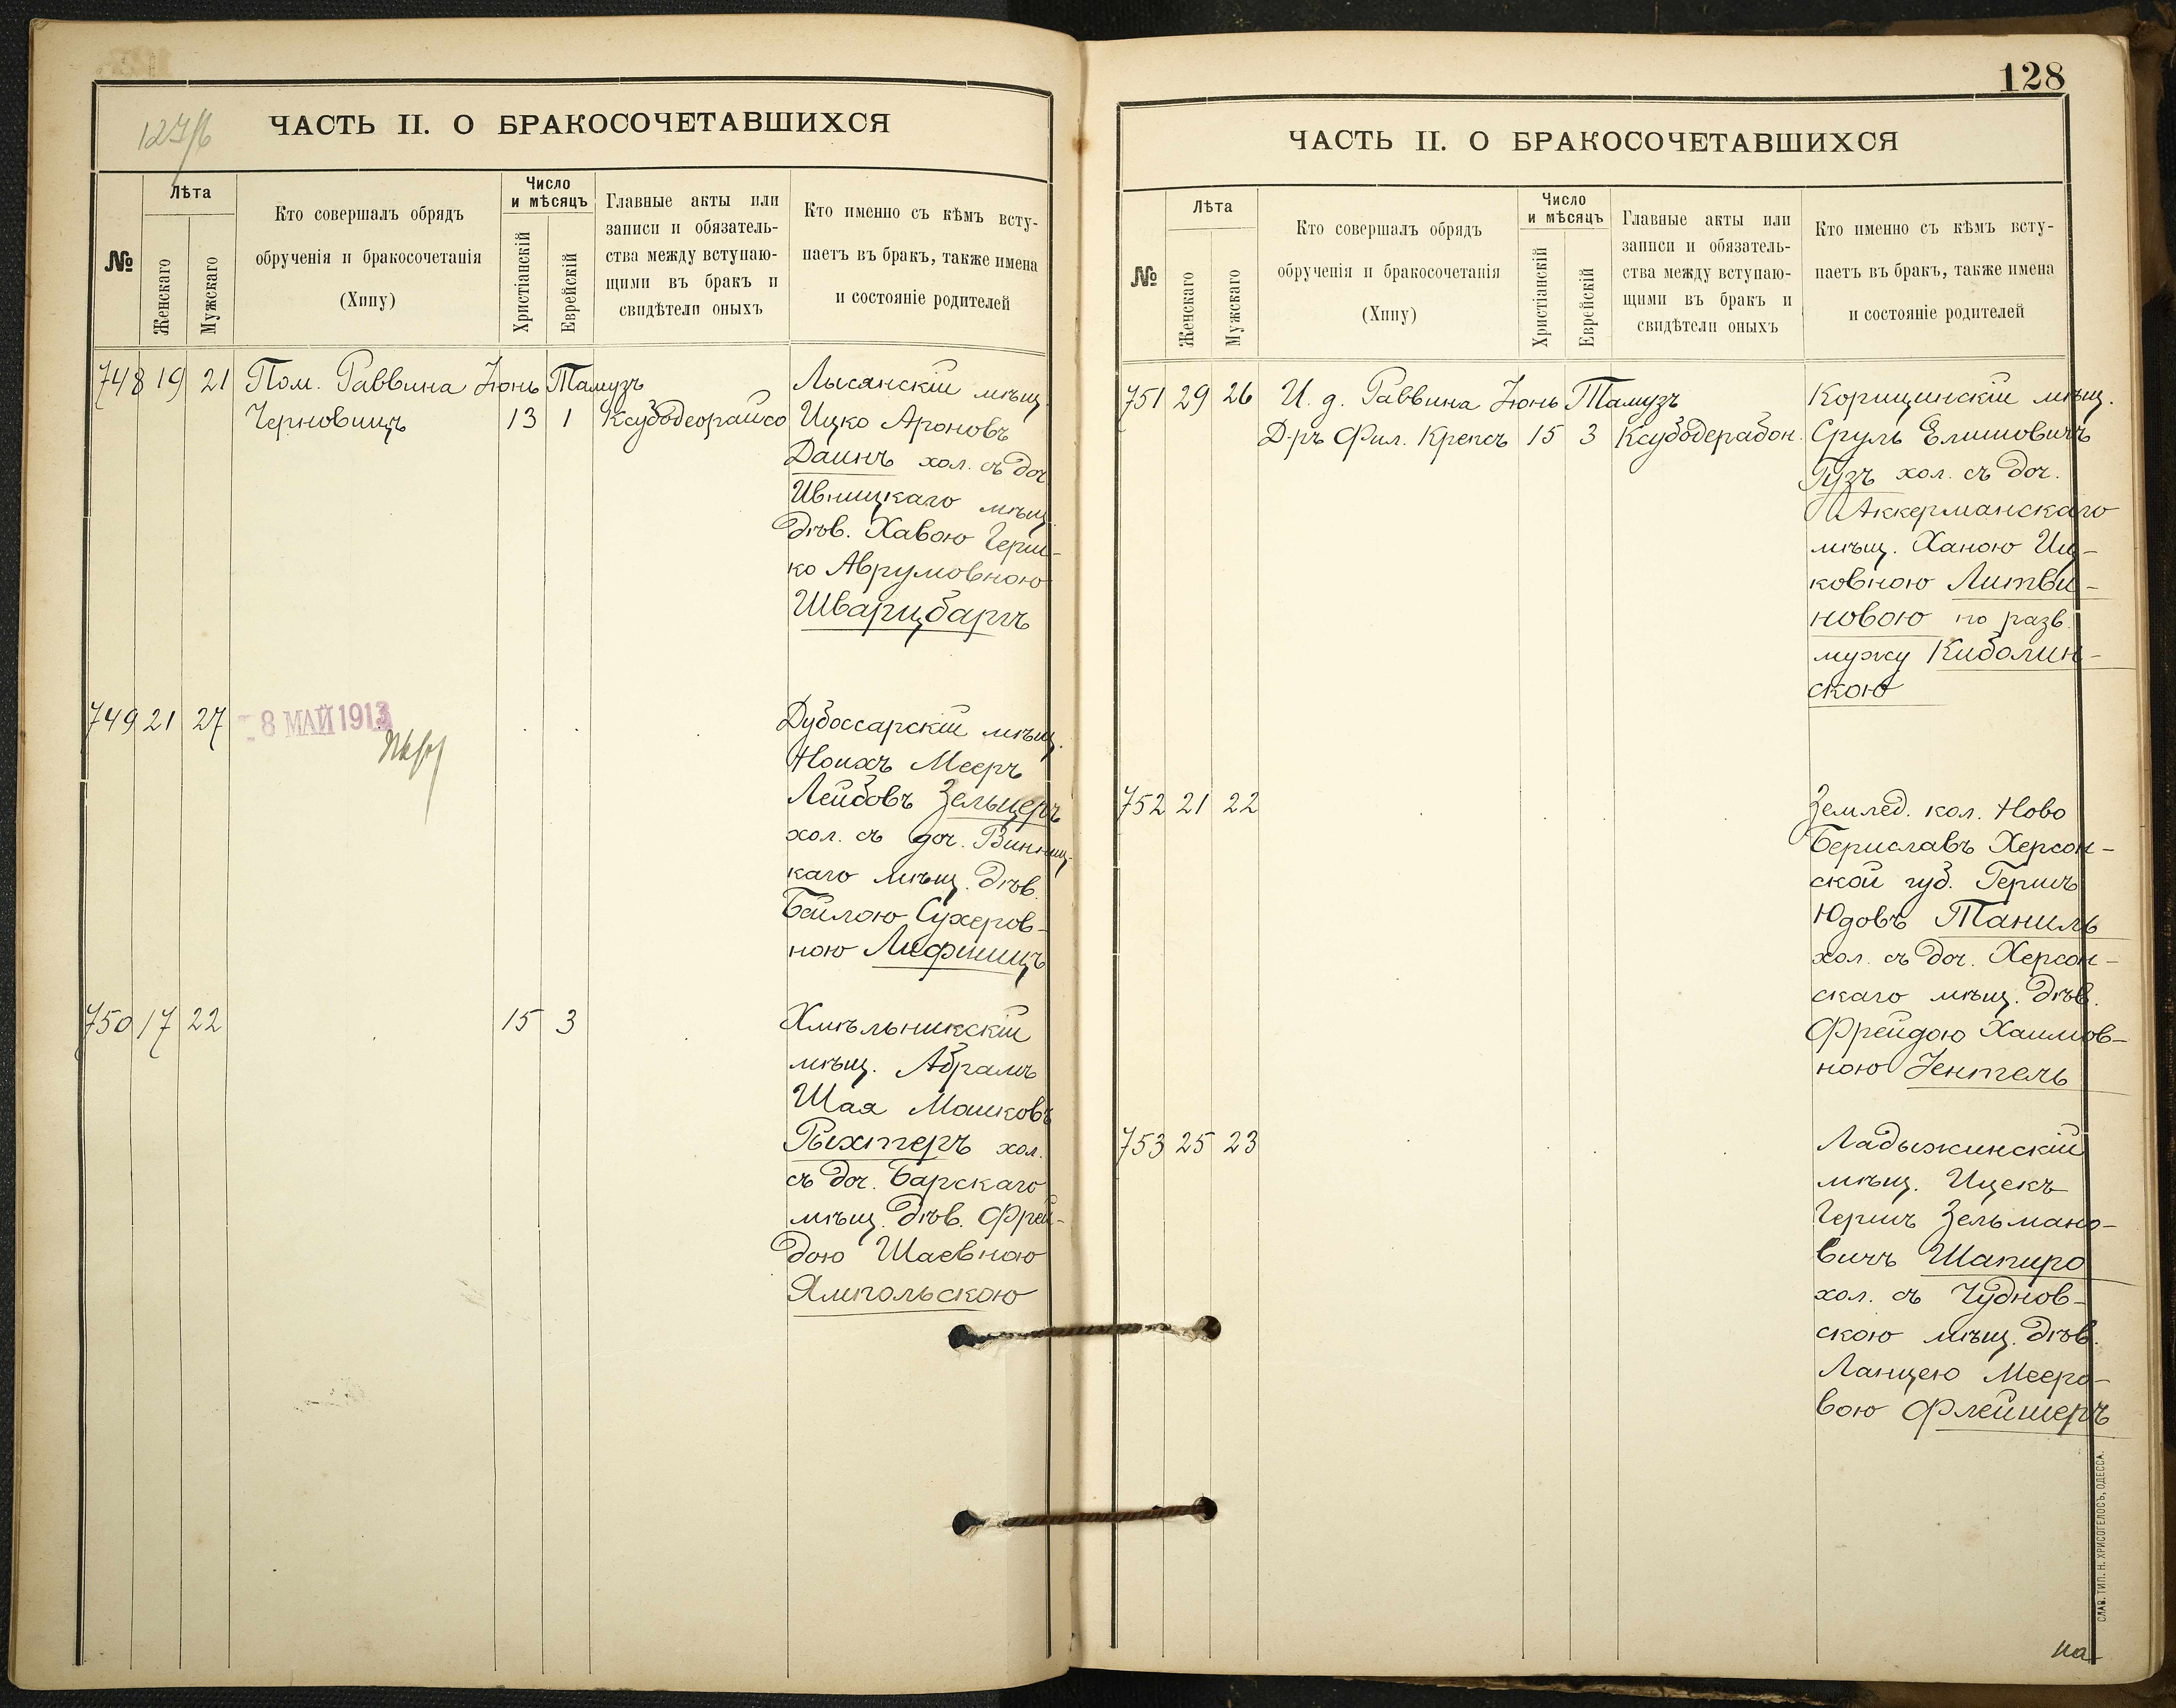 127/б
ЧАСТЬ II. О БРАКОСОЧЕТАВШИХСЯ
№
Лѣта
Женскаго
Мужскаго
Кто совершалъ обрядъ
обрученія и бракосочетанія
(Хипу)
Число
и мѣсяцъ
Христіанскій
Еврейскій
Главные акты или
записи и обязатель-
ства между вступаю-
щими въ бракъ и
свидѣтели оныхъ
Кто именно съ кѣмъ всту-
паетъ въ бракъ, также имена
и состояніе родителей
748 19 21 Пом. Раввина Іюнь Тамузъ Лысянскій мѣщ.
Черновицъ 13 1 Ксубодеорайсо Ицко Ароновъ
Даинъ хол. съ доч.
Ивницкаго мѣщ.
дѣв. Хавою Герш-
ко Аврумовною
Шварцбаргъ
749 21 27 - 8 МАЙ 1913 Дубоссарскій мѣщ.
Ноихъ Мееръ
Лейбовъ Зельцеръ
хол. съ доч. Винниц-
каго мѣщ. дѣв.
Бейлою Сухеров-
ною Лифшицъ
750 17 22 15 3 Хмѣльникскій
мѣщ. Абрамъ
Шая Мошковъ
Рыхтеръ хол.
съ доч. Барскаго
мѣщ. дѣв. Фрей-
дою Шаевною
Ямпольскою
128
ЧАСТЬ II. О БРАКОСОЧЕТАВШИХСЯ
№
Лѣта
Женскаго
Мужскаго
Кто совершалъ обрядъ
обрученія и бракосочетанія
(Хипу)
Число
и мѣсяцъ
Христіанскій
Еврейскій
Главные акты или
записи и обязатель-
ства между вступаю-
щими въ бракъ и
свидѣтели оныхъ
Кто именно съ кѣмъ всту-
паетъ въ бракъ, также имена
и состояніе родителей
751 29 26 И. д. Раввина Іюнь Тамузъ Корицинскій мѣщ.
Д-ръ Фил. Крепсъ 15 3 Ксубодерабон. Сруль Елишовичъ
Гузъ хол. съ доч.
Аккерманскаго
мѣщ. Ханою Иц-
ковною Литви-
новою по разв.
мужу Киболин-
скою
752 21 22 Землед. кол. Ново
Бериславъ Херсон-
ской губ. Гершъ
Юдовъ Таниль
хол. съ доч. Херсон-
скаго мѣщ. дѣв.
Фрейдою Хаимов-
ною Зентель
753 25 23 Ладыжинскій
мѣщ. Ицекъ
Гершъ Зельмано-
вичъ Шапиро
хол. съ Чуднов-
скою мѣщ. дѣв.
Ланцею Мееро-
вою Флейшеръ
СЛАВ. ТИП. Н. ХРИСОГЕЛОСЪ, ОДЕССА.